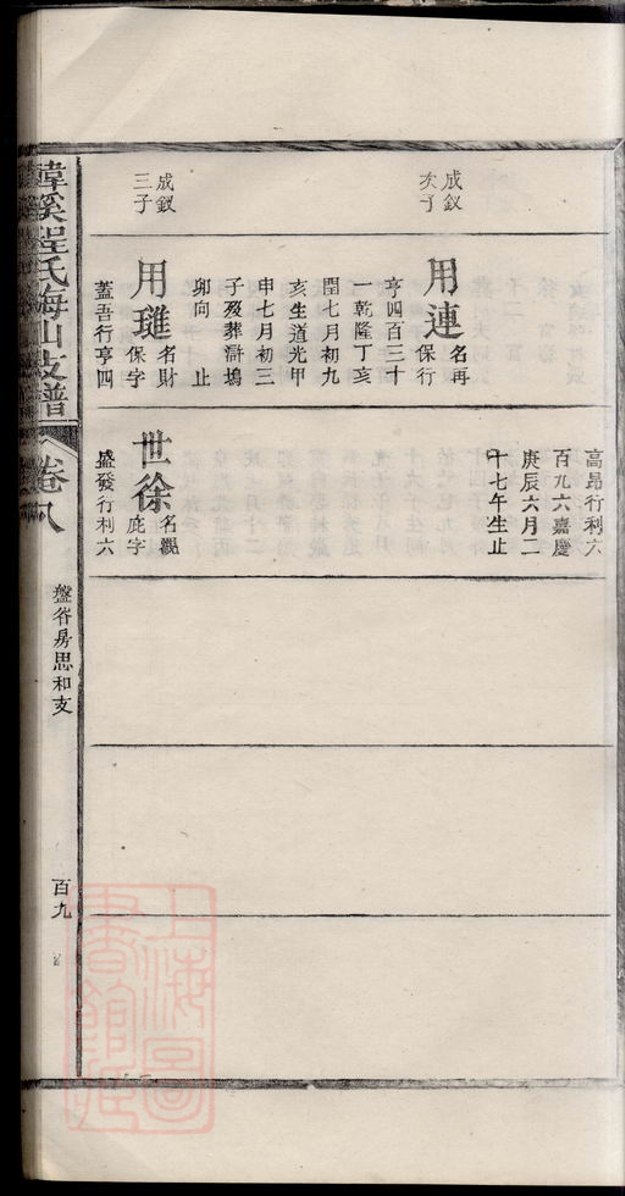 成釵
次子
用連
名再
保行
亨四百三十
一乾隆丁亥
閏七月初九
亥生道光甲
申七月初三
子歿葬滸塢
卯向 止
高昂行利六
百九六嘉慶
庚辰六月二
十七午生止
成釵
三子
用璡
名財
保字
蓋吾行亨四
世徐
名觀
庇字
盛發行利六
韓溪程氏梅山支譜
卷八
盤谷房思和支
百九
上海圖書館藏